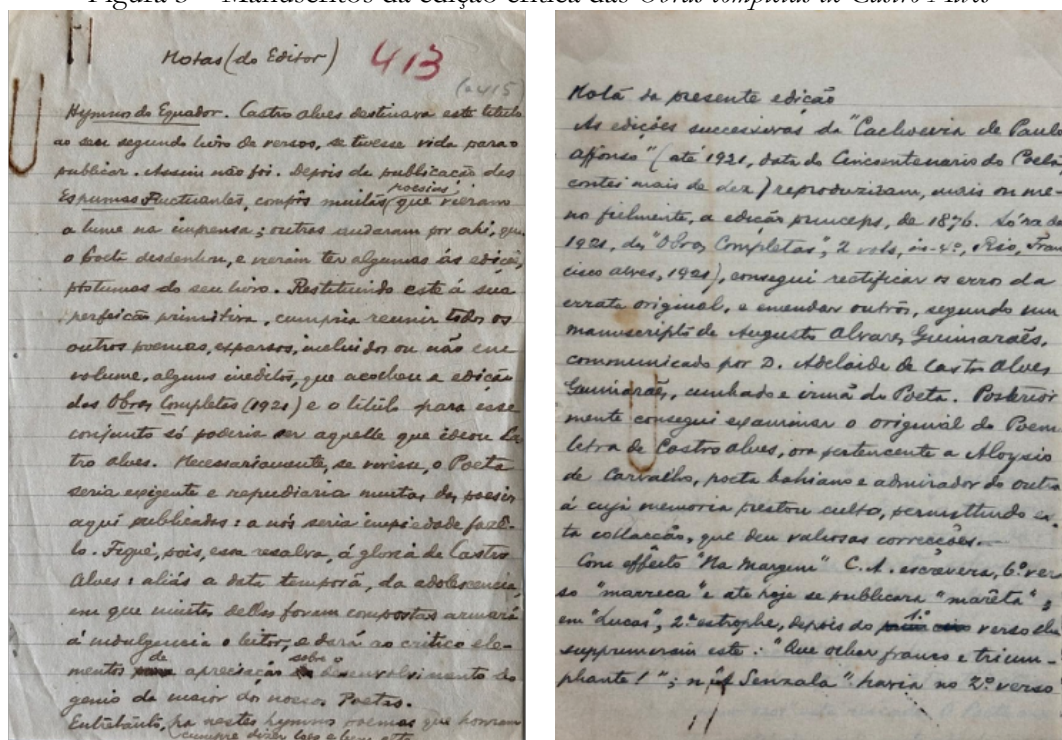 Figura 3 – Manuscritos da edição crítica das Obras completas de Castro Alves
Notas (do Editor) 413
(a 415)
Hymnos do Equador. Castro Alves destinava este titulo
ao seu segundo livro de versos, se tivesse vida para o
publicar. Assim não foi. Depois da publicação das
poesias
Espumas Fluctuantes, compôs muitas que vieram
a lume na imprensa; outras andaram por ahi, que
o Poeta desdenhou, e vieram ter algumas ás edições
posthumas do seu livro. Restituindo este á sua
perfeição primitiva, cumpria reunir todos os
outros poemas, esparsos, incluidos ou não em
volume, alguns ineditos, que acolheu a edição
das Obras Completas (1921) e o titulo para esse
conjunto só poderia ser aquelle que ideou Cas
tro Alves. Necessariamente, se vivesse, o Poeta
seria exigente e repudiaria muitas das poesias
aqui publicadas: a nós seria impiedade fazê-
lo. Fique, pois, essa resalva, á gloria de Castro
Alves: aliás a data temporã, da adolescencia,
em que muitas dellas foram compostas armará
á indulgencia o leitor, e dará ao critico ele-
de sobre o
mentos apreciação desenvolvimento do
genio do maior dos nossos Poetas.
Entretanto, ha nestes hymnos poemas que honram
cumpre dizer logo e bem alto
Nota da presente edicão
As edições successivas da "Cachoeira de Paulo
Affonso" (até 1921, data do Cincoentenario do Poeta,
contei mais de dez) reproduziram, mais ou me
no fielmente, a edição princeps, de 1876. Só na de
1921, das "Obras Completas", 2 vols, in-4º, Rio, Fran
cisco Alves, 1921), consegui rectificar os erros da
errata original, e emendar outros, segundo um
manuscripto de Augusto Alvares Guimarães,
communicado por D. Adelaide de Castro Alves
Guimarães, cunhado e irmã do Poeta. Posterior
mente consegui examinar o original do Poema
letra de Castro Alves, ora pertencente a Aloysio
de Carvalho, poeta bahiano e admirador do outro
á cuja memoria prestou culto, permittindo es
ta collacção, que deu valiosas correcções.
Com effeito "Na Margem" C. A. escrevera, 6º ver
so "marreca" e até hoje se publicara "marêta";
1º
em "Lucas", 2ª estrophe, depois do verso
supprimiram este: "Que olhar franco e trium-
phante!"; Senzala" havia no 2º verso